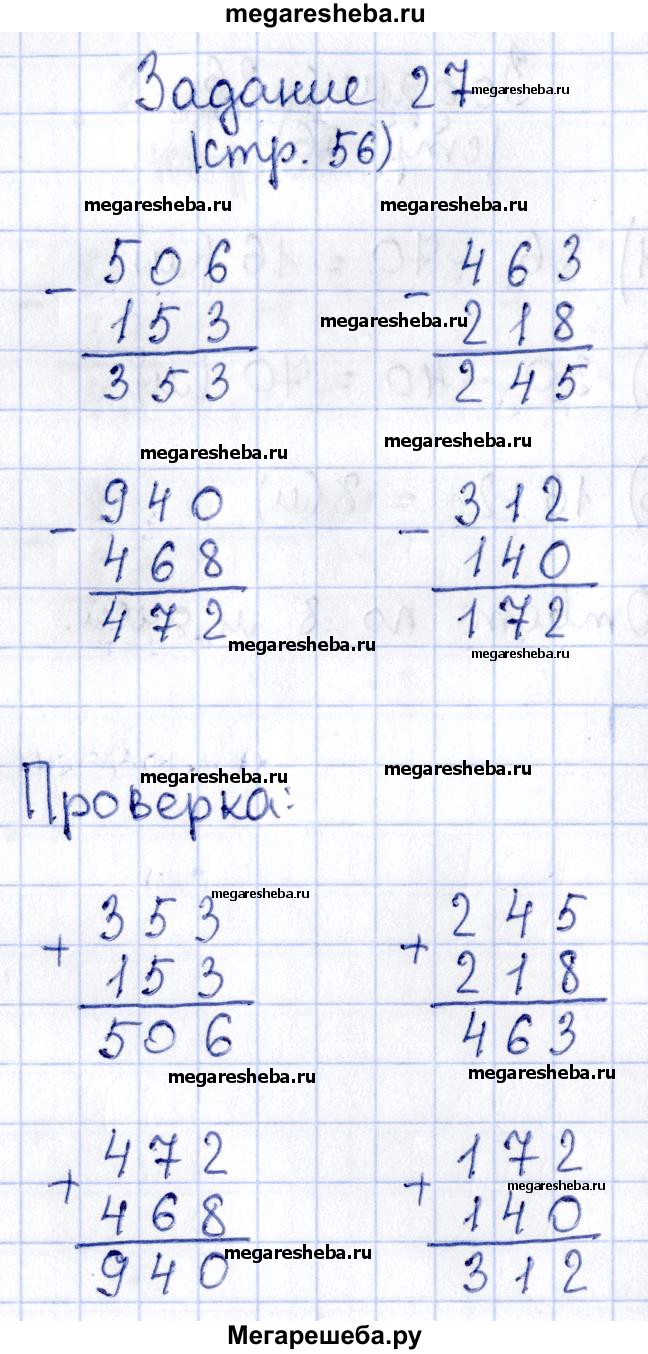 megaresheba.ru
Задание 27 megaresheba.ru
(стр. 56)
megaresheba.ru megaresheba.ru
- 506 - 463
153 megaresheba.ru 218
353 245
megaresheba.ru megaresheba.ru
- 940 - 312
468 140
472 172
megaresheba.ru megaresheba.ru
megaresheba.ru megaresheba.ru
Проверка:
megaresheba.ru
+ 353 + 245
153 218
506 463
megaresheba.ru megaresheba.ru
+ 472 + 172
megaresheba.ru
468 140
940 megaresheba.ru 312
Мегарешеба.ру